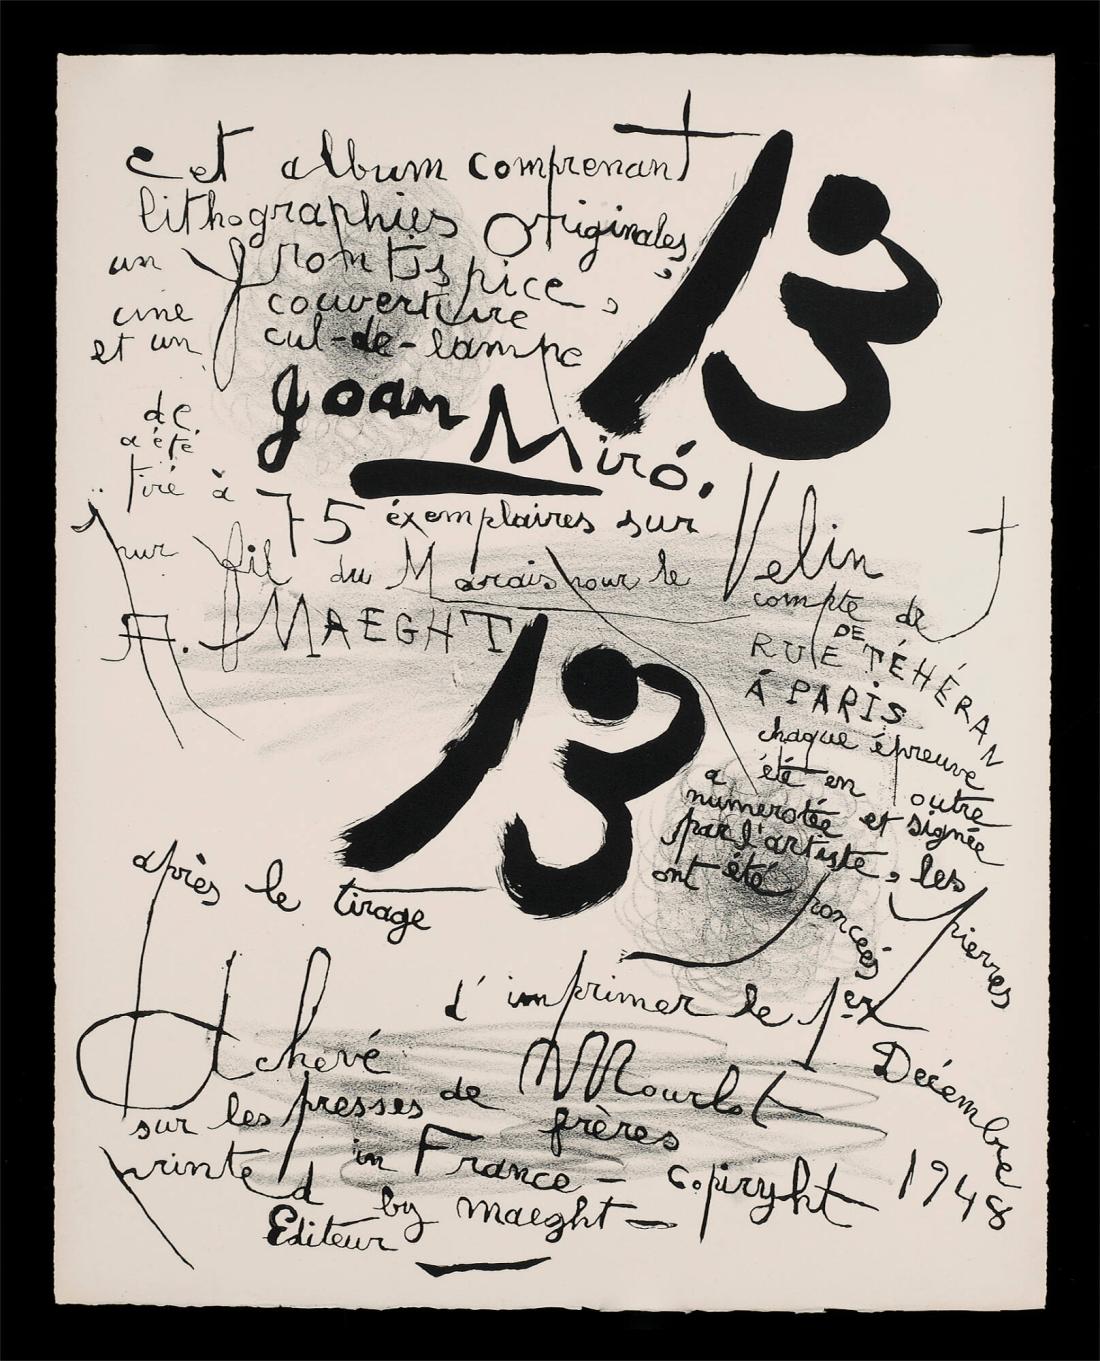 Cet album comprenant 13
lithographies originales,
un frontispice,
une couverture
et un cul-de-lampe
de Joan Miró.
a été
tiré à 75 exemplaires sur Velin
pur fil du Marais pour le compte de
A. MAEGHT RUE DE TÉHÉRAN
À PARIS
chaque épreuve
a été en outre
numerotée et signée
par l'artiste, les pierres
ont été poncées
13
après le tirage
d'imprimer le 1er Décembre 1948
Achevé
sur les presses de Mourlot
frères
printed in France - copiryht
by maeght -
Editeur